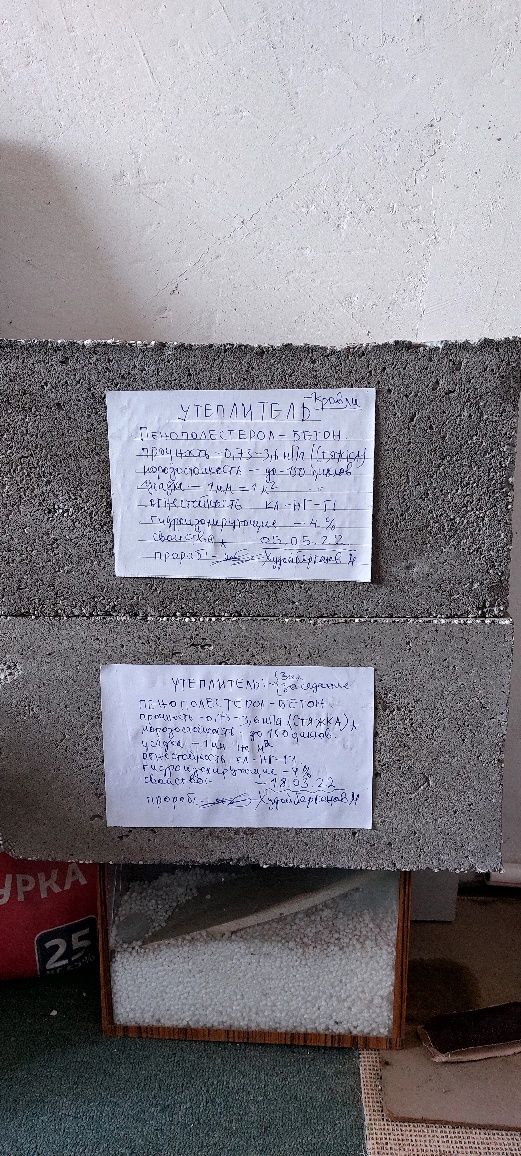 УТЕПЛИТЕЛЬ - Кровли
ПЕНОПОЛЕСТЕРОЛ - БЕТОН
прочность - 0,73 - 3,6 мПа (Стяжка)
морозостойкость - до - 150 циклов
усадка - 1 мм = 1 м²
огнестойкость кл - НГ - Г1
гидроизонирующие - 4%
свойства 03.05.22
прораб: Худойберганов
УТЕПЛИТЕЛЬ:
заседание
ПЕНОПОЛЕСТЕРОЛ - БЕТОН
прочность - 0,73 - 3,6 мПа (СТЯЖКА)
морозостойкость - до 150 циклов
усадка - 1 мм м²
огнестойкость кл - НГ - Г1
гидроизонирующие - 4%
свойство - 18.03.22
прораб: Худойберганов
УРКА
25
КГ ±5%